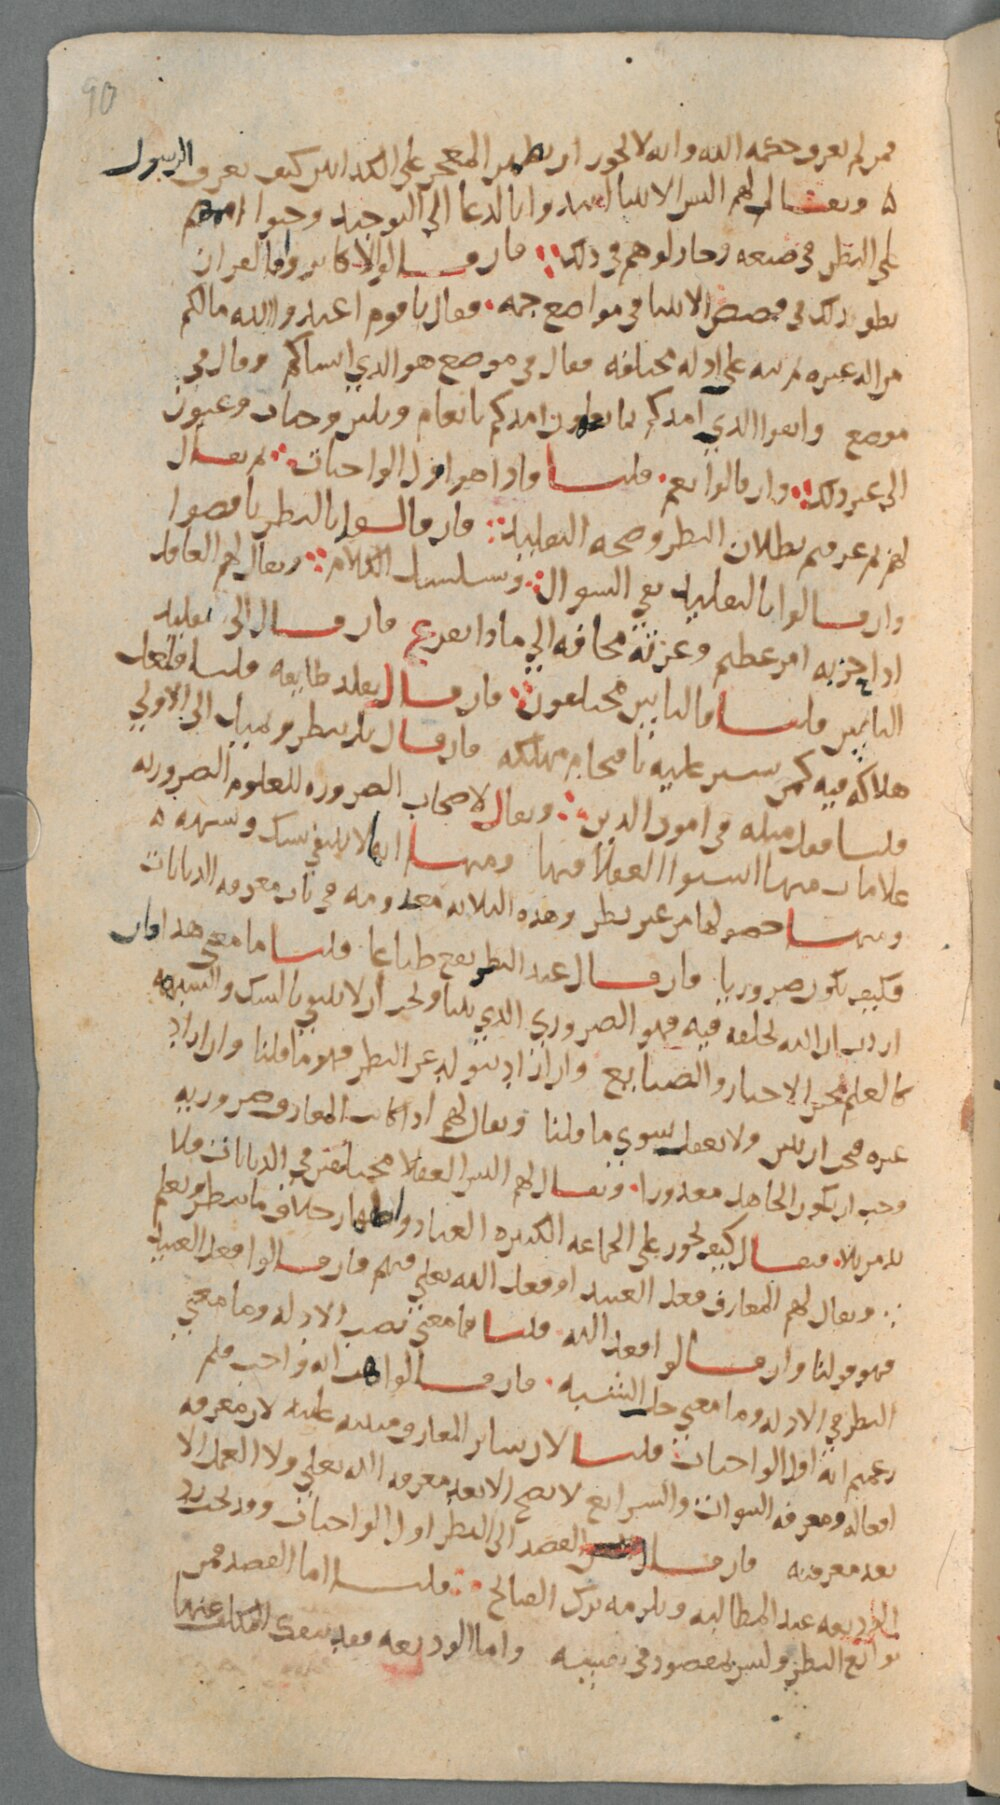 90
فمن لم يعرف حكمة الله وانه لا يجوز ان يظهر المعجز على الكذابين كيف يعرف الرسول
ويقال لهم اليس الانبيا ابتدوا بالدعا الى التوحيد وحثوا اممهم
على النظر في صنعه وجادلوهم في ذلك فان قالوا لا كابروا والقران
ينطق بذلك في قصص الانبيا في مواضع جمة فقال يا قوم اعبدوا الله مالكم
من اله غيره ثم نبه على ادلة مختلفة فقال في موضع هو الذي انشاكم وقال في
موضع واتقوا الذي امدكم بما تعلمون امدكم بانعام وبنين وجنات وعيون
الى غير ذلك وان قالوا نعم قلنا فاذا هو اول الواجبات ثم يقال
لهم بم عرفتم بطلان النظر وصحة التقليد فان قالوا بالنظر ناقضوا
وان قالوا بالتقليد بقي السوال وتسلسل الكلام ويقال لهم العاقل
اذا حزبه امر عظيم وعزته مخافة الى ماذا يفزع فان قال الى تقليد
الناس قلنا فالناس مختلفون فان قال يقلد طايفة قلنا فلعل
هلاكه فيه كمن يسير عليه نا مهلكه فان قال بل ينظر ويميل الى الاولى
قلنا فقل مثله في امور الدين ويقال لاصحاب الضرورة للعلوم الضرورية
علامات منها استوا العقلا فيها ومنها انها لا تنتفي بشك وشبهة
ومنها حصولها من غير نظر وهذه الثلاثة معدومة في باب معرفة الديانات
فكيف يكون ضروريا فان قال عند النظر يقع طباعا قلنا ما معنى هذا فان
اردت ان الله يخلقه فيه فهو الضروري الذي بينا ويجب ان لا ينتفي بالشك والشبهة
كالعلم بمخبر الاخبار والصنايع وان اراد يتولد عن النظر فهو ما قلنا وان اراد
غيره فيجب ان يبين ولا يعقل سوى ما قلنا ويقال لهم اذا كانت المعارف ضرورية
وجب ان يكون الجاهل معذورا ويقال لهم اليس العقلا مختلفين في الديانات فلا
بد من بلا فيقال كيف يجوز على الجماعة الكثيرة العناد واظهار خلاف ما ينظر ويعلم
ويقال لهم المعارف فعل العبد او فعل الله تعلى فيهم فان قالوا فعل العبد
فهو قولنا وان قالوا فعل الله قلنا فما معنى نصب الادلة وما معنى
النظر في الادلة وما معنى حل الشبه فان قالوا هب انه واجب فلم
زعمتم انه اول الواجبات قلنا لان ساير المعارف مبنية عليه لان معرفة
افعاله ومعرفة النبوات والشرايع لا تصح الا بعد معرفة الله تعلى ولا العمل الا
بعد معرفته فان قال اليس القصد الى النظر اول الواجبات وقد يجب رد
الوديعة عند المطالبة ويلزمه ترك القبايح قلنا اما القصد فمن
توابع النظر وليس بمقصود في نفسه واما الوديعة فقد ينفك المكلف عنها